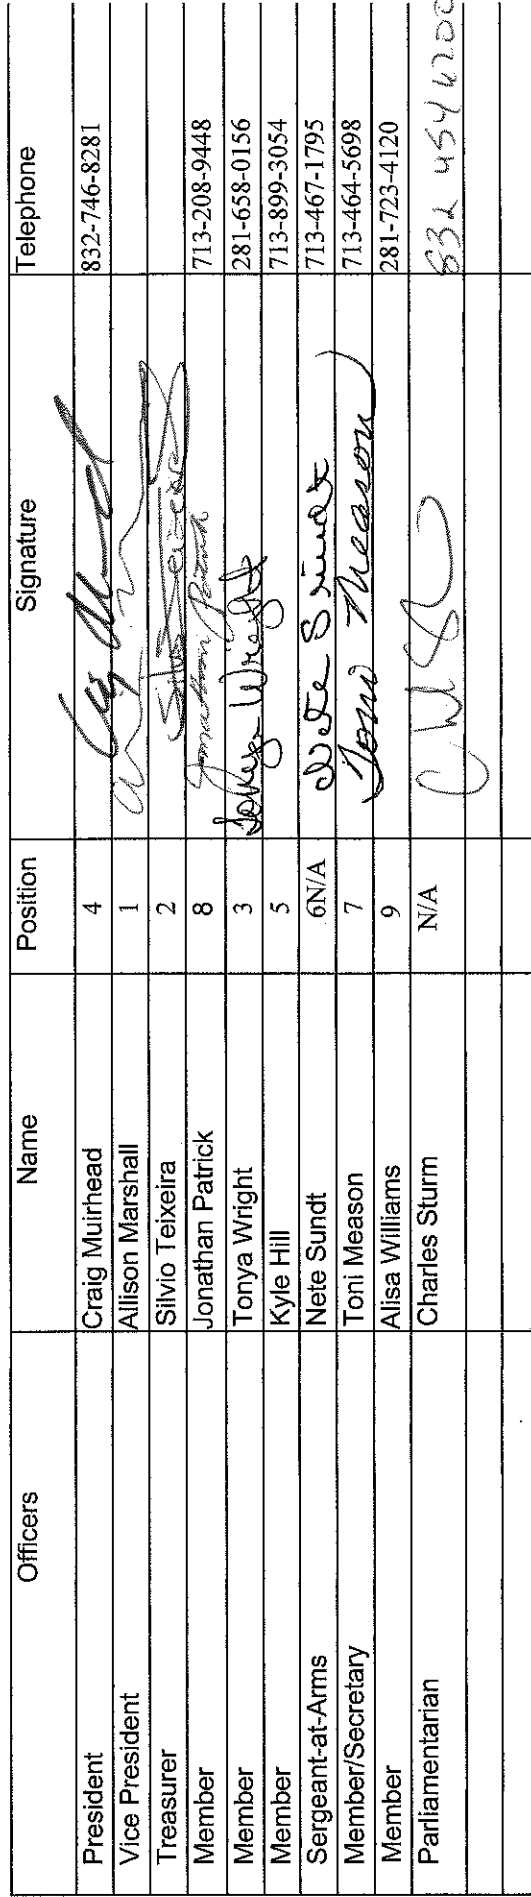 Officers Name Position Signature Telephone
President Craig Muirhead 4 832-746-8281
Vice President Allison Marshall 1
Treasurer Silvio Teixeira 2 Silvio Teixeira
Member Jonathan Patrick 8 Jonathan Patrick 713-208-9448
Member Tonya Wright 3 Tonya Wright 281-658-0156
Member Kyle Hill 5 713-899-3054
Sergeant-at-Arms Nete Sundt 6N/A Nete Sundt 713-467-1795
Member/Secretary Toni Meason 7 Toni Meason 713-464-5698
Member Alisa Williams 9 281-723-4120
Parliamentarian Charles Sturm N/A 832 454 6200